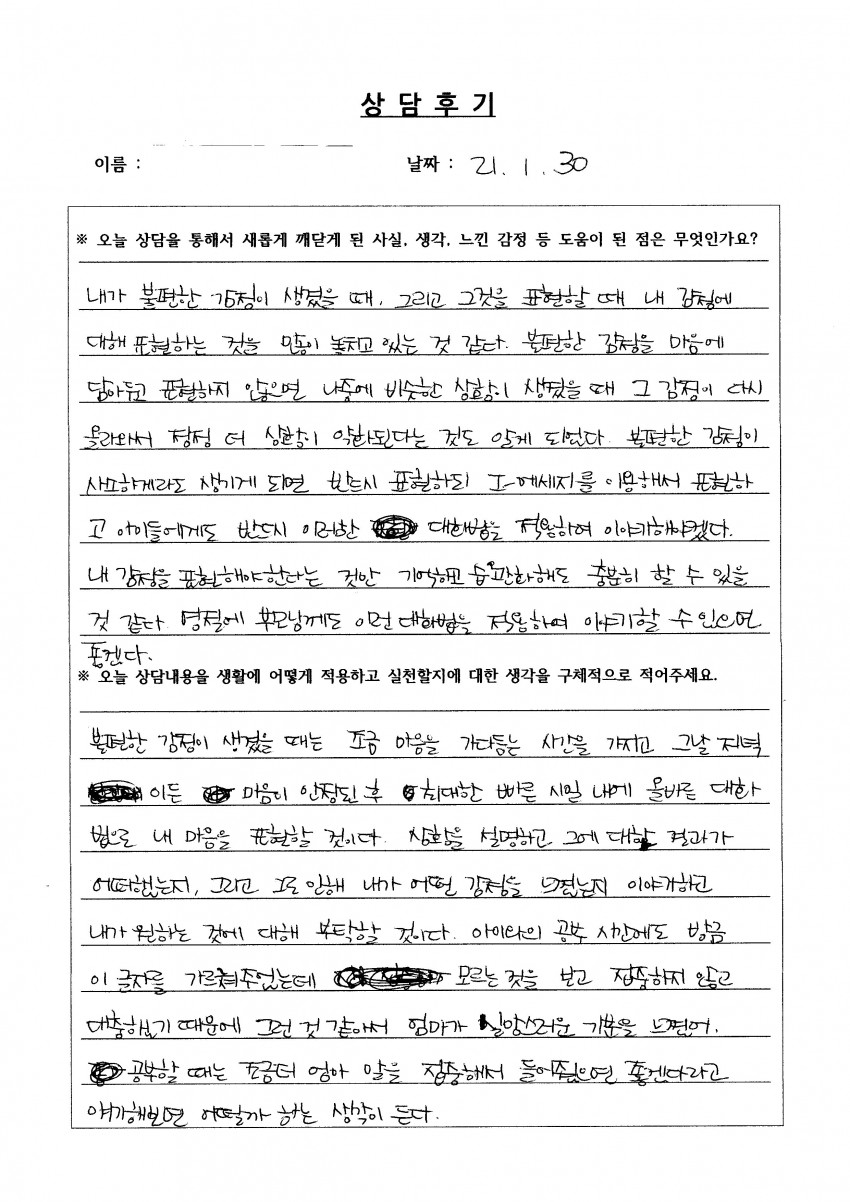 상 담 후 기
이름 :
날짜 : 21. 1. 30
※ 오늘 상담을 통해서 새롭게 깨닫게 된 사실, 생각, 느낀 감정 등 도움이 된 점은 무엇인가요?
내가 불편한 감정이 생겼을 때, 그리고 그것을 표현할 때 내 감정에
대해 표현하는 것을 많이 놓치고 있는 것 같다. 불편한 감정을 마음에
담아두고 표현하지 않으면 나중에 비슷한 상황이 생겼을 때 그 감정이 다시
올라와서 점점 더 상황이 악화된다는 것도 알게 되었다. 불편한 감정이
사소하게라도 생기게 되면 반드시 표현하되 I-메세지를 이용해서 표현하
고 아이들에게도 반드시 이러한 대화법을 적용하여 이야기해야겠다.
내 감정을 표현해야한다는 것만 기억하고 습관화해도 충분히 할 수 있을
것 같다. 명절에 부모님께도 이런 대화법을 적용하여 이야기할 수 있으면
좋겠다.
※ 오늘 상담내용을 생활에 어떻게 적용하고 실천할지에 대한 생각을 구체적으로 적어주세요.
불편한 감정이 생겼을 때는 조금 마음을 가다듬는 시간을 가지고 그날 저녁
이든 마음이 안정된 후 최대한 빠른 시일 내에 올바른 대화
법으로 내 마음을 표현할 것이다. 상황을 설명하고 그에 대한 결과가
어떠했는지, 그리고 그로 인해 내가 어떤 감정을 느꼈는지 이야기하고
내가 원하는 것에 대해 부탁할 것이다. 아이와의 공부 시간에도 방금
이 글자를 가르쳐주었는데 모르는 것을 보고 집중하지 않고
대충하기 때문에 그런 것 같아서 엄마가 실망스러운 기분을 느꼈어.
공부할 때는 조금더 엄마 말을 집중해서 들어줬으면 좋겠다라고
얘기해보면 어떨까 하는 생각이 든다.